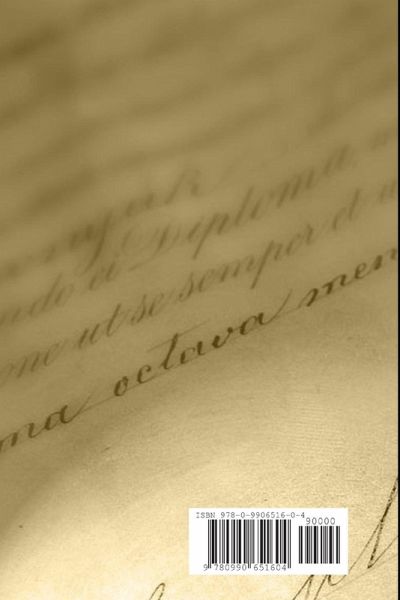 ndo ei Diploma
ut se semper et u
ma octava men
ISBN 978-0-9906516-0-4
90000
9 780990 651604